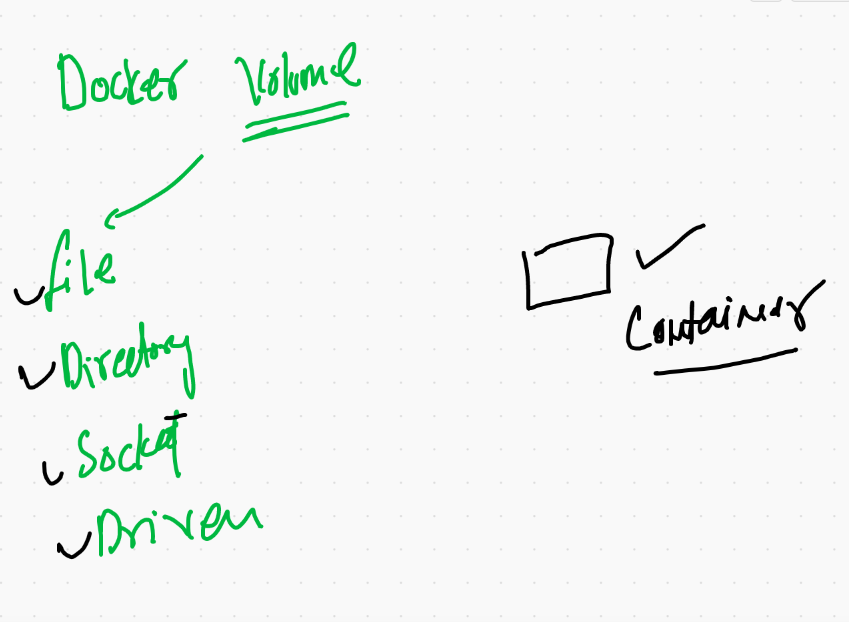 Docker Volume
file
Directory
Socket
Driver
Container